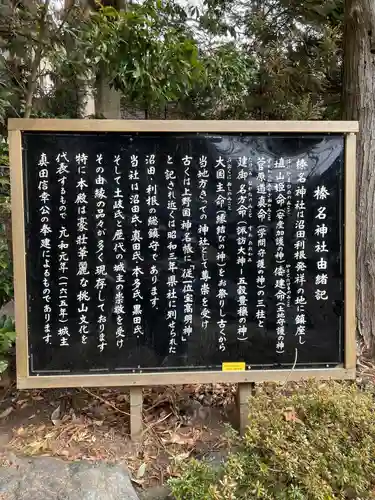 榛名神社由緒記
榛名神社は沼田利根発祥の地に鎮座し
埴山姫命(安産加護の神)倭建命(土地守護の神)
菅原道真命(学問守護の神)の三柱と
建御名方命(諏訪大神―五穀豊穣の神)
大国主命(縁結びの神)をお祭りし古から
当地方きっての神社として尊崇を受け
古くは上野国神名帳に「従一位宝高明神」
と記され近くは昭和三年県社に列せられた
沼田、利根の総鎮守であります
当社は沼田氏、真田氏、本多氏、黒田氏、
そして土岐氏と歴代の城主の崇敬を受け
その由緒の品々が多く現存しております
特に本殿は豪壮華麗な桃山文化を
代表するもので 元和元年(一六一五年)城主
真田信幸公の奉建によるものであります。